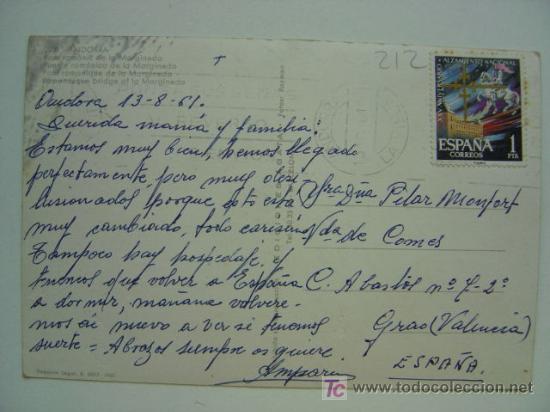 ANDORRA
Pont romànic de la Margineda
Puente románico de la Margineda
Pont romanique de la Margineda
Romanesque bridge of la Margineda
212
ALZAMIENTO NACIONAL
ESPAÑA 1
CORREOS PTA
Andora 13-8-61.
Querida mamá y familia:
Estamos muy bien, hemos llegado
perfectamente, pero muy desi-
lusionados porque esto está
muy cambiado, todo carísimo
Tampoco hay hospedaje.
Tenemos que volver a España
a dormir, mañana volvere-
mos de nuevo a ver si tenemos
suerte = Abrazos siempre os quiere.
Amparin
Sra Dña Pilar Monfort
Vda de Comes
C. Abastos nº 7-2º
Grao (Valencia)
ESPAÑA.
todocoleccion
www.todocoleccion.net